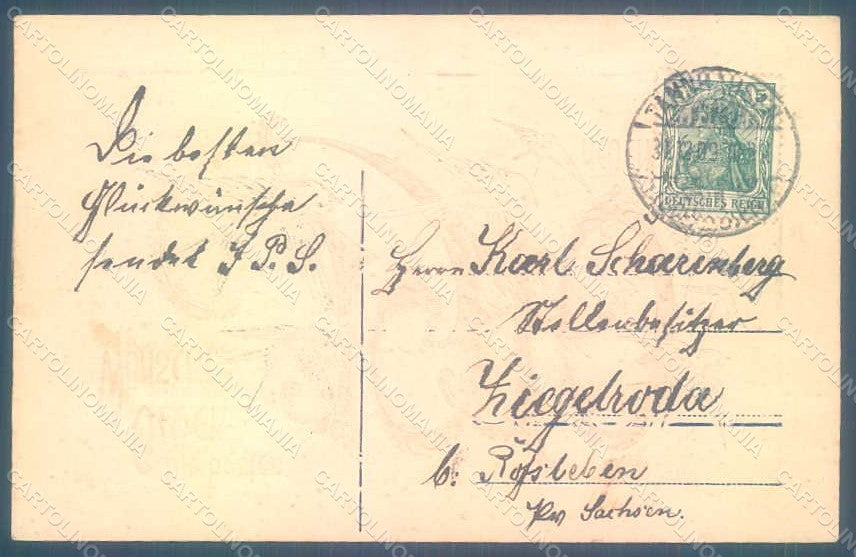 Die besten
Glückwünsche
sendet J. P. S.
DEUTSCHES REICH
Herrn Karl Scharenberg
Stellenbesitzer
Ziegelroda
b: Roßleben
Prv Sachsen.
CARTOLINOMANIA